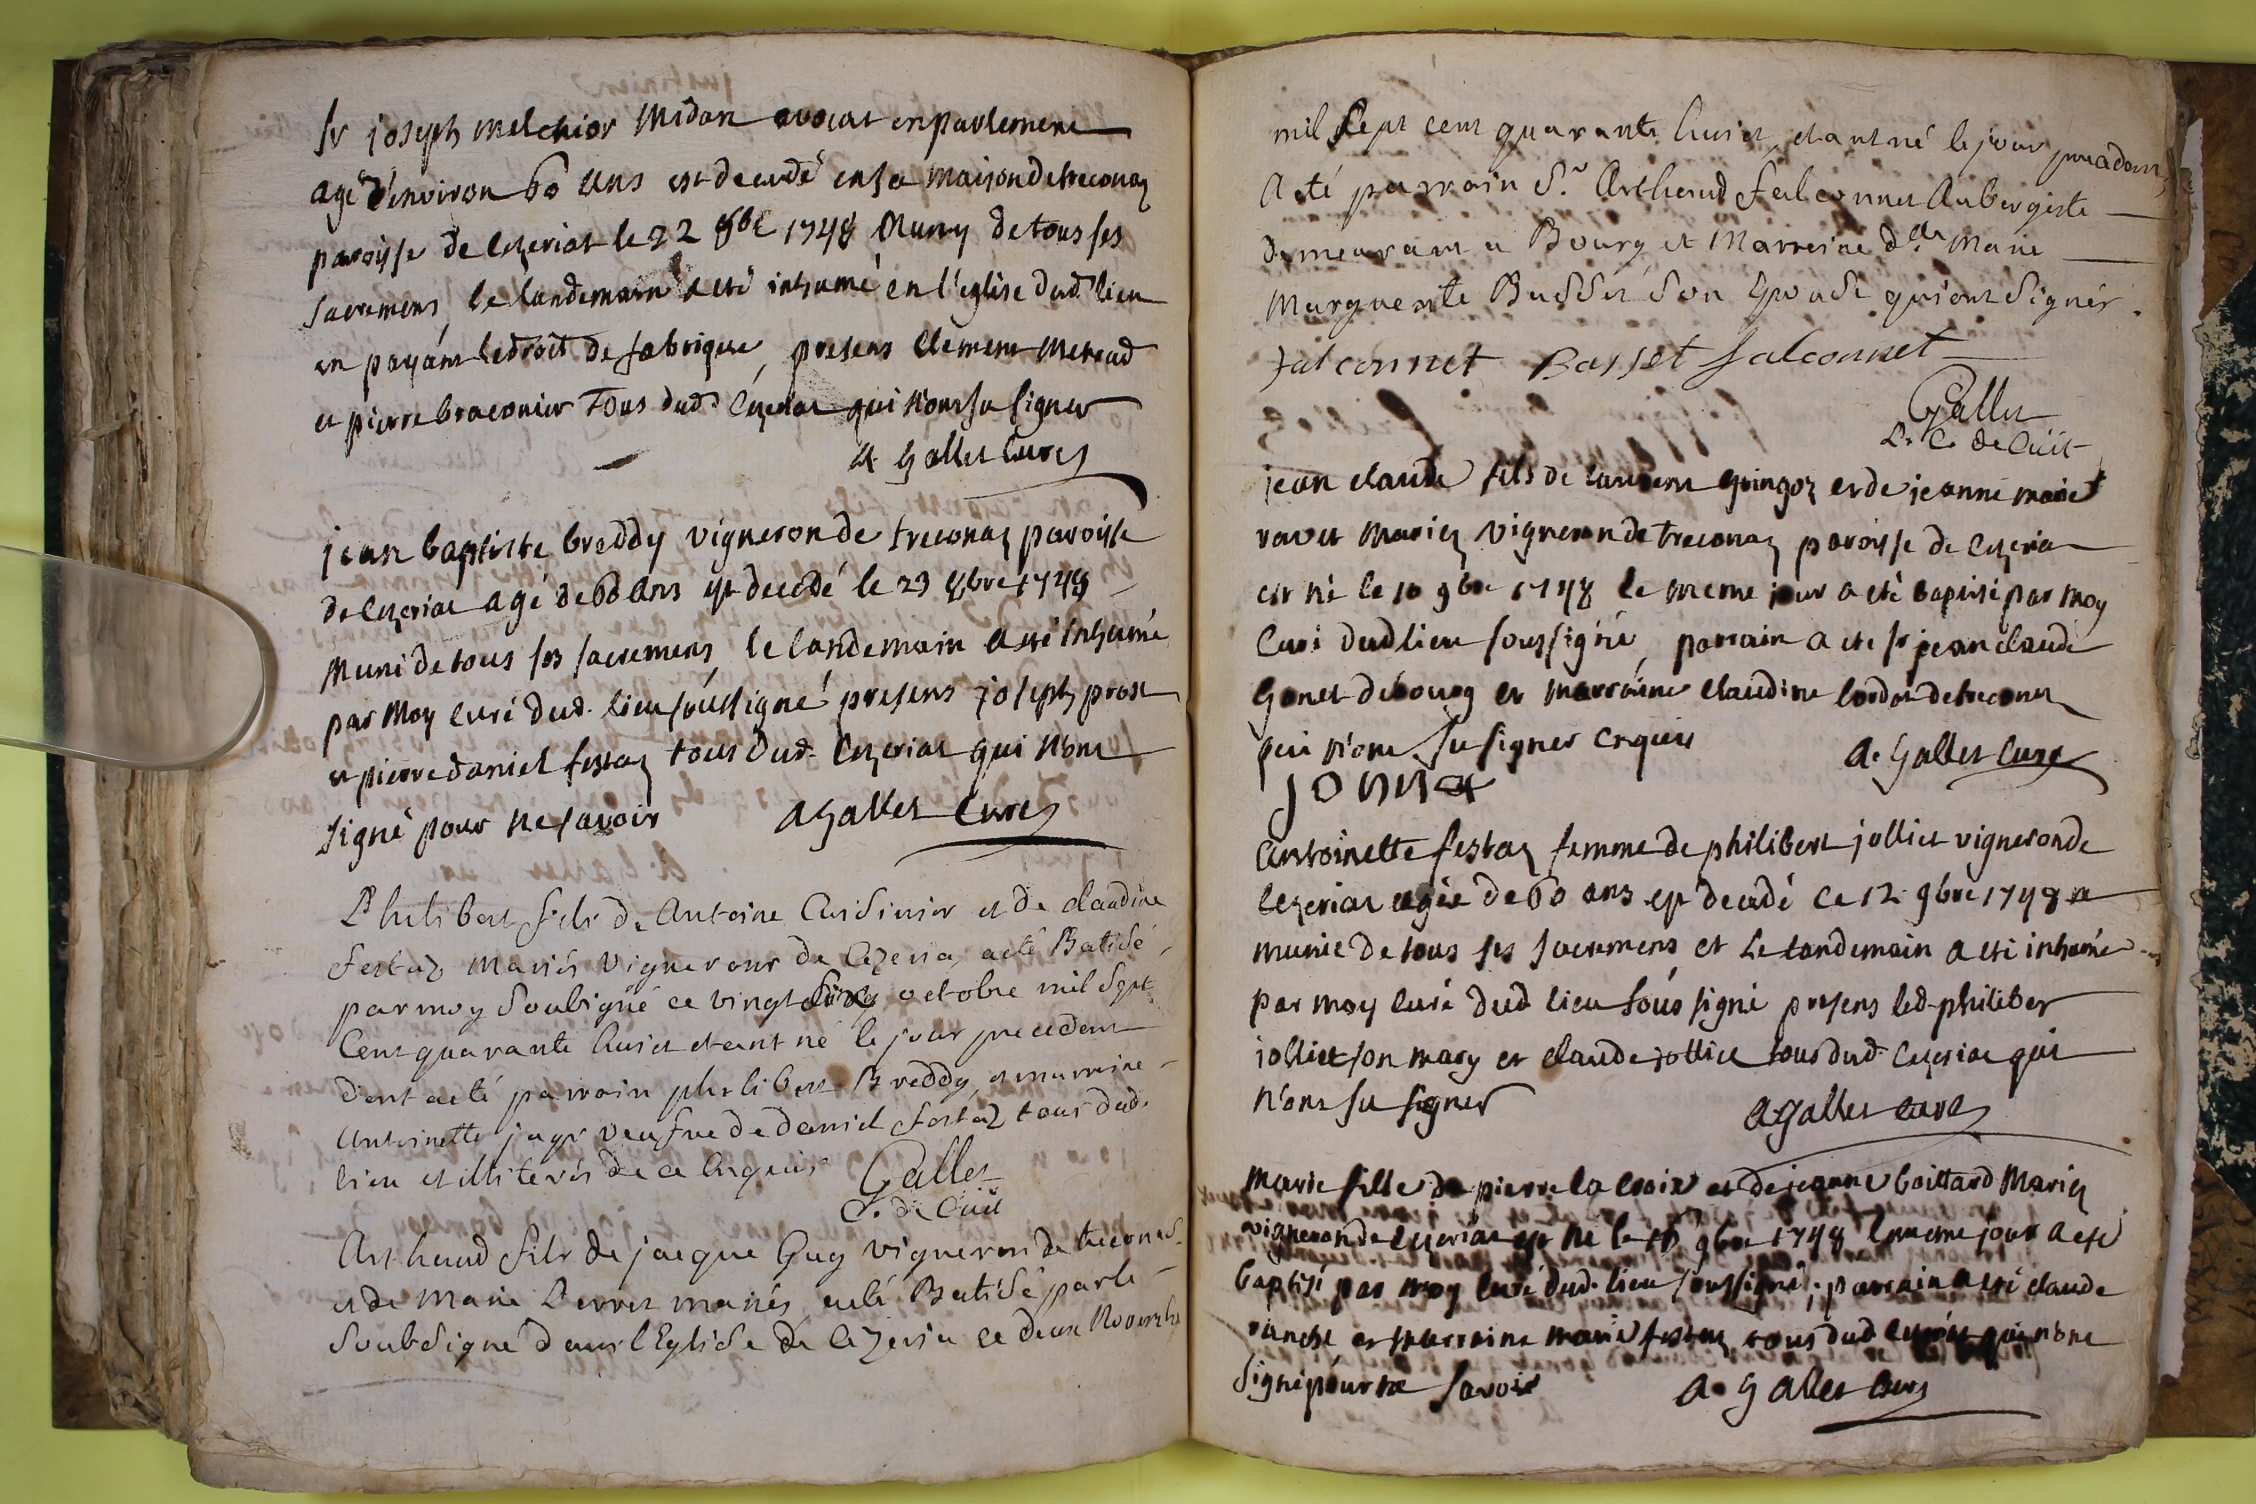 Sr joseph melchior Midan avocat en parlement
agé d'environ 60 ans est decedé en sa maison de treconaz
paroisse de Cezeriat le 22 8bre 1748 Muny de tous ses
sacremens, le landemain a eté inhumé en l'eglise dud. lieu
en payant le droit de fabrique, presens Clement
et pierre braconier tous dud. Cezeriat qui n'ont su signer
A Gallet Curé
jean baptiste breddy vigneron de treconaz paroisse
de Cezeriat agé de 60 ans est decedé le 23 8bre 1748
Muni de tous ses sacremens, le landemain a eté inhumé
par Moy curé dud. lieu soussigné presens joseph prost
et pierre daniel festaz tous dud. Cezeriat qui n'ont
signé pour ne savoir A Gallet Curé
Philibert fils de Antoine Cuisinier et de claudine
festaz Mariés Vignerons de Cezeria, a eté Batisé
par moy Soubsigné ce vingt octobre mil Sept
Cent quarante huict etant né le jour precedent
dont a eté parrain philibert Breddy, et marraine
Antoinette veufve de daniel festaz tous dud.
lieu et illiterés de ce Enquis
Gallet
Arthaud fils de jacque Guy vigneron de treconas
et de Marie Perret mariés, a eté Batisé par le
Soubsigné dans l'Eglise de Cezeria ce deux Novembre
mil Sept cent quarante huict, etant né le jour precedent,
A eté parrain Sr. Arthaud falconnet Aubergiste
demeurant a Bourg et Marreine dlle. Marie
Marguerite Basset Son Epouse qui ont Signés.
falconnet Basset falconnet
Gallet
jean claude fils de laurent gringoz et de jeanne marie
ravet Mariez Vigneron de treconaz paroisse de Cezeria
est né le 10 9bre 1748 le meme jour a eté baptisé par Moy
Curé dud lieu soussigné, parrain a eté Sr jean claude
Gonet de bourg et marraine claudine de treconaz
qui n'ont su signer enquis A. Gallet Curé
Antoinette festaz femme de philibert jolliet vigneron de
Cezeriat agée de 60 ans est decedé ce 12 9bre 1748
munie de tous ses sacremens et le landemain a eté inhumée
par moy curé dud lieu soussigné presens led. philibert
jolliet son mary et claude jolliet tous dud. Cezeriat qui
n'ont su signer A Gallet curé
Marie fille de pierre la croix et de jeanne boittard Mariez
vigneron de Cezeriat est né le 9bre 1748 le meme jour a eté
baptisé par moy curé dud. lieu soussigné; parrain a eté claude
et marraine marie festaz tous dud qui n'ont
signé pour ne savoir A. Gallet Curé